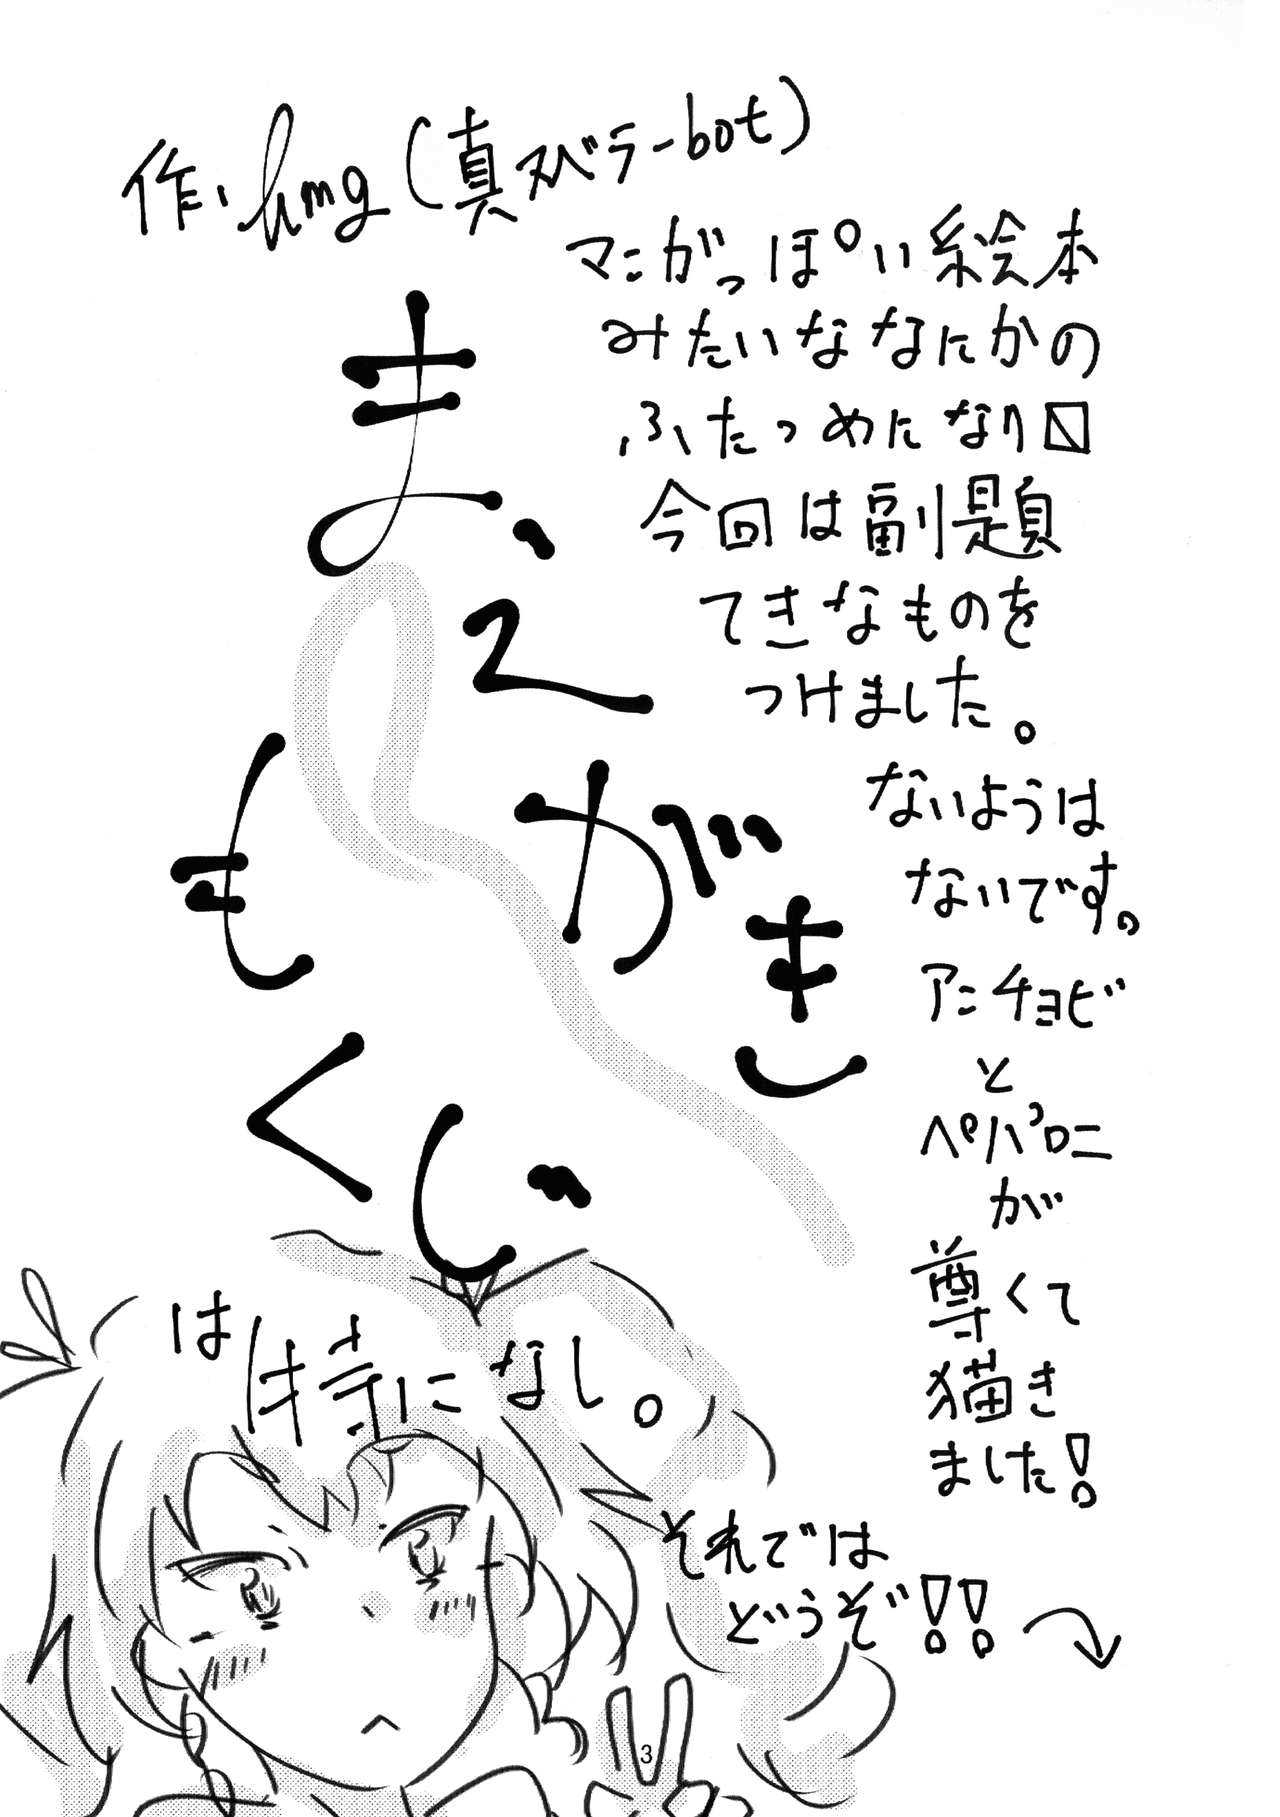 作、hmg(真スベラーbot)
マンがっぽい絵本
みたいななにかの
ふたつめになり〼
今回は副題
てきなものを
つけました。
ないようは
ないです。
アンチョビ
と
ペパロニ
が
尊くて
描き
ました!
それでは
どうぞ!!
ま、
えがき
もくじ
は特になし。
3